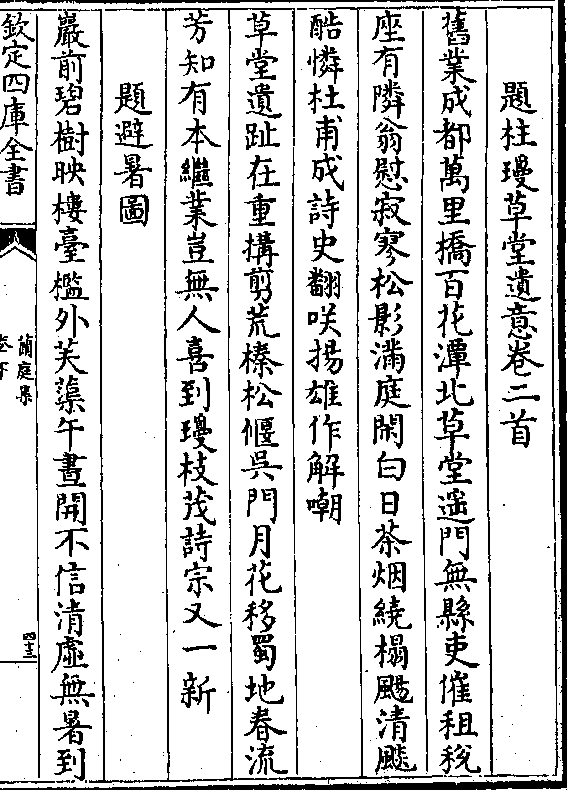 題杜瓊草堂遺意卷二首
舊業成都萬里橋百花潭北草堂遥門無縣吏催租税
座有隣翁慰寂寥松影滿庭閑白日茶烟繞榻颺清飈
酷憐杜甫成詩史翻咲揚雄作解嘲
草堂遺趾在重搆剪荒榛松偃吳門月花移蜀地春流
芳知有本繼業豈無人喜到瓊枝茂詩宗又一新
題避暑圖
巖前碧樹映樓臺檻外芙蕖午晝開不信清虚無暑到
欽定四庫全書
蘭庭集
卷下